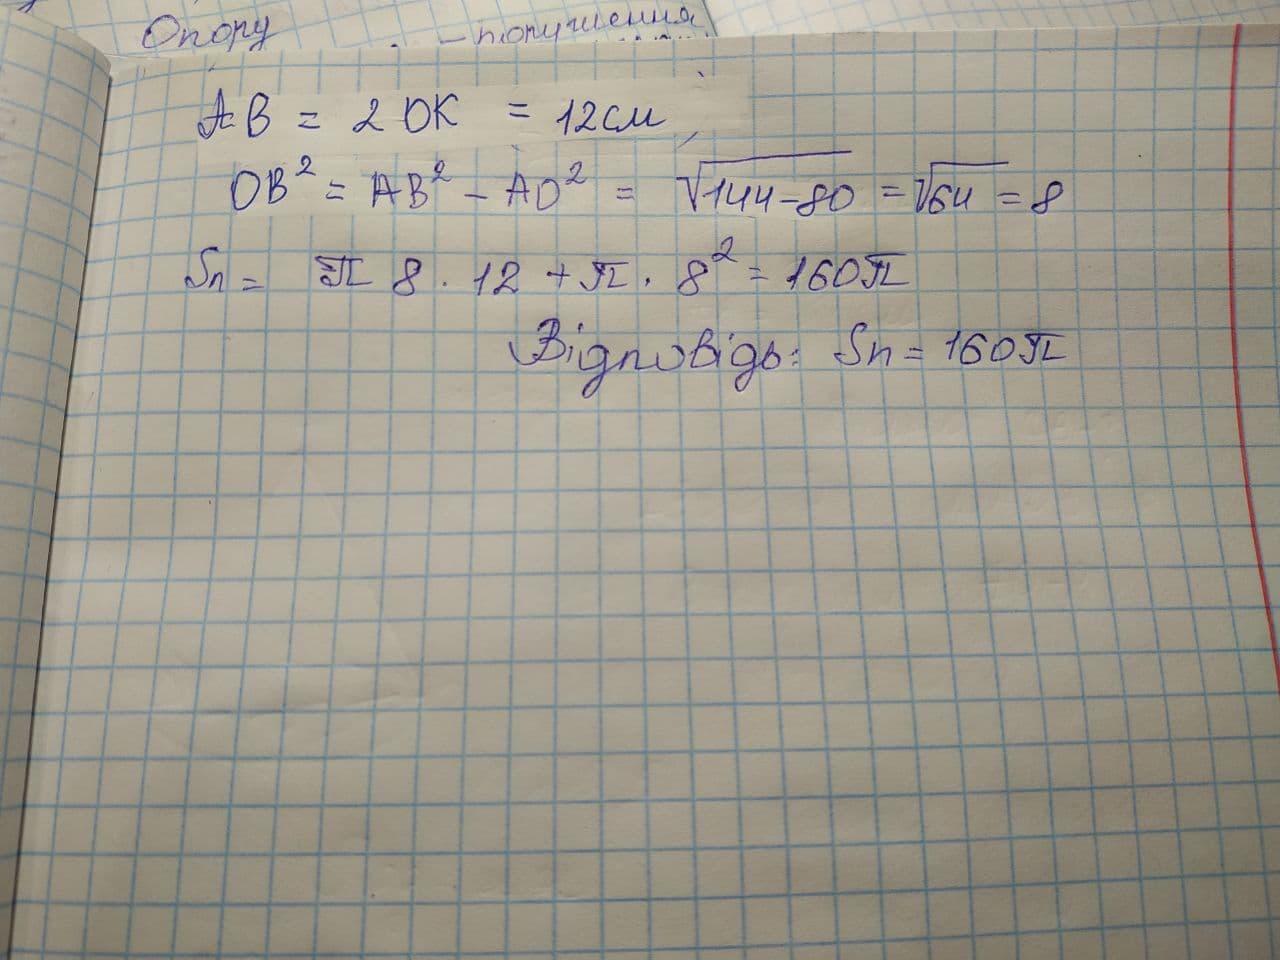 Опору
- порушення
AB = 2 OK = 12см
OB² = AB² - AO² = √144-80 = √64 = 8
Sп = π 8 · 12 + π · 8² = 160π
Відповідь: Sп = 160π